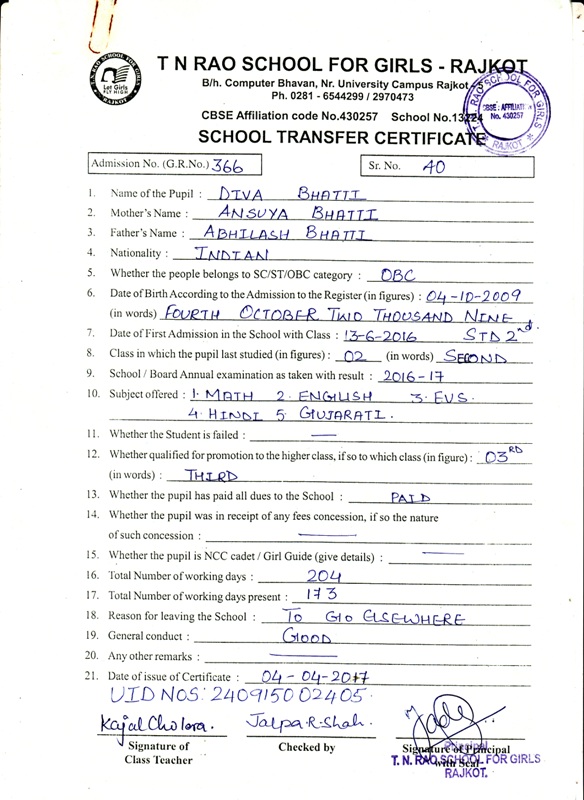 T. N. RAO SCHOOL FOR GIRLS
Let Girls
FLY HIGH
RAJKOT
T N RAO SCHOOL FOR GIRLS - RAJKOT
B/h. Computer Bhavan, Nr. University Campus Rajkot -
Ph. 0281 - 6544299 / 2970473
CBSE Affiliation code No.430257 School No.13224
RAO SCHOOL FOR GIRLS
CBSE : AFFILIATION
No. 430257
RAJKOT
SCHOOL TRANSFER CERTIFICATE
Admission No. (G.R.No.) 366 Sr. No. 40
1. Name of the Pupil : DIVA BHATTI
2. Mother's Name : ANSUYA BHATTI
3. Father's Name : ABHILASH BHATTI
4. Nationality : INDIAN
5. Whether the people belongs to SC/ST/OBC category : OBC
6. Date of Birth According to the Admission to the Register (in figures) : 04-10-2009
(in words) FOURTH OCTOBER TWO THOUSAND NINE
7. Date of First Admission in the School with Class : 13-6-2016 STD 2nd
8. Class in which the pupil last studied (in figures) : 02 (in words) SECOND
9. School / Board Annual examination as taken with result : 2016-17
10. Subject offered : 1. MATH 2. ENGLISH 3. EVS.
4. HINDI 5. GUJARATI.
11. Whether the Student is failed : —
12. Whether qualified for promotion to the higher class, if so to which class (in figure) : 03RD
(in words) : THIRD
13. Whether the pupil has paid all dues to the School : PAID
14. Whether the pupil was in receipt of any fees concession, if so the nature
of such concession : —
15. Whether the pupil is NCC cadet / Girl Guide (give details) : —
16. Total Number of working days : 204
17. Total Number of working days present : 173
18. Reason for leaving the School : TO GO ELSEWHERE
19. General conduct : GOOD
20. Any other remarks : —
21. Date of issue of Certificate : 04-04-2017
UID NOS: 240915002405.
Kajal Cholera. Jalpa.R.Shah.
Signature of Checked by Signature of Principal
Class Teacher with Seal
Principal
T. N. RAO SCHOOL FOR GIRLS
RAJKOT.